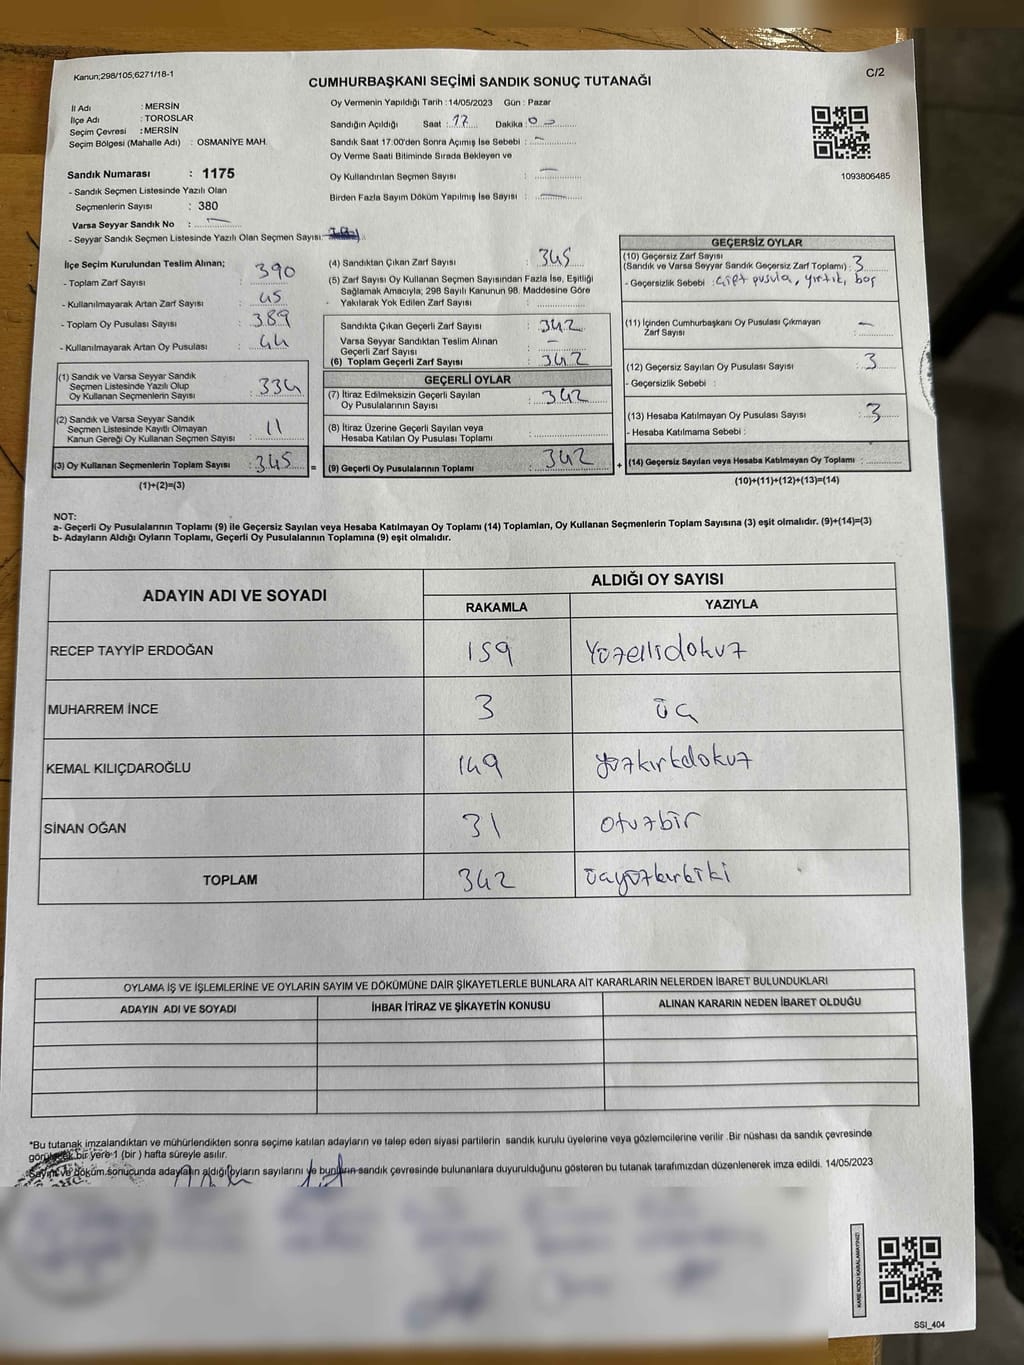 Kanun;298/105,6271/18-1
C/2
CUMHURBAŞKANI SEÇİMİ SANDIK SONUÇ TUTANAĞI
İl Adı : MERSİN
İlçe Adı : TOROSLAR
Seçim Çevresi : MERSİN
Seçim Bölgesi (Mahalle Adı) : OSMANİYE MAH.
Sandık Numarası : 1175
- Sandık Seçmen Listesinde Yazılı Olan
Seçmenlerin Sayısı : 380
Varsa Seyyar Sandık No :
- Seyyar Sandık Seçmen Listesinde Yazılı Olan Seçmen Sayısı:
Oy Vermenin Yapıldığı Tarih : 14/05/2023 Gün : Pazar
Sandığın Açıldığı Saat : 17 Dakika : 0
Sandık Saat 17:00'den Sonra Açımış İse Sebebi : –
Oy Verme Saati Bitiminde Sırada Bekleyen ve
Oy Kullandırılan Seçmen Sayısı : –
Birden Fazla Sayım Döküm Yapılmış İse Sayısı : –
1093806485
İlçe Seçim Kurulundan Teslim Alınan;
- Toplam Zarf Sayısı : 390
- Kullanılmayarak Artan Zarf Sayısı : 45
- Toplam Oy Pusulası Sayısı : 389
- Kullanılmayarak Artan Oy Pusulası : 44
(1) Sandık ve Varsa Seyyar Sandık
Seçmen Listesinde Yazılı Olup
Oy Kullanan Seçmenlerin Sayısı : 334
(2) Sandık ve Varsa Seyyar Sandık
Seçmen Listesinde Kayıtlı Olmayan
Kanun Gereği Oy Kullanan Seçmen Sayısı : 11
(3) Oy Kullanan Seçmenlerin Toplam Sayısı : 345
(1)+(2)=(3)
(4) Sandıktan Çıkan Zarf Sayısı : 345
(5) Zarf Sayısı Oy Kullanan Seçmen Sayısından Fazla İse, Eşitliği
Sağlamak Amacıyla, 298 Sayılı Kanunun 98. Maddesine Göre
Yakılarak Yok Edilen Zarf Sayısı :
Sandıkta Çıkan Geçerli Zarf Sayısı : 342
Varsa Seyyar Sandıktan Teslim Alınan
Geçerli Zarf Sayısı : –
(6) Toplam Geçerli Zarf Sayısı : 342
GEÇERLİ OYLAR
(7) İtiraz Edilmeksizin Geçerli Sayılan
Oy Pusulalarının Sayısı : 342
(8) İtiraz Üzerine Geçerli Sayılan veya
Hesaba Katılan Oy Pusulası Toplamı :
= (9) Geçerli Oy Pusulalarının Toplamı : 342
GEÇERSİZ OYLAR
(10) Geçersiz Zarf Sayısı
(Sandık ve Varsa Seyyar Sandık Geçersiz Zarf Toplamı) : 3
- Geçersizlik Sebebi : çift pusula, yırtık, boş
(11) İçinden Cumhurbaşkanı Oy Pusulası Çıkmayan
Zarf Sayısı : –
(12) Geçersiz Sayılan Oy Pusulası Sayısı : 3
- Geçersizlik Sebebi :
(13) Hesaba Katılmayan Oy Pusulası Sayısı : 3
- Hesaba Katılmama Sebebi :
+ (14) Geçersiz Sayılan veya Hesaba Katılmayan Oy Toplamı :
(10)+(11)+(12)+(13)=(14)
NOT:
a- Geçerli Oy Pusulalarının Toplamı (9) ile Geçersiz Sayılan veya Hesaba Katılmayan Oy Toplamı (14) Toplamları, Oy Kullanan Seçmenlerin Toplam Sayısına (3) eşit olmalıdır. (9)+(14)=(3)
b- Adayların Aldığı Oyların Toplamı, Geçerli Oy Pusulalarının Toplamına (9) eşit olmalıdır.
ADAYIN ADI VE SOYADI
ALDIĞI OY SAYISI
RAKAMLA YAZIYLA
RECEP TAYYİP ERDOĞAN 159 Yüzellidokuz
MUHARREM İNCE 3 üç
KEMAL KILIÇDAROĞLU 149 yüzkırkdokuz
SİNAN OĞAN 31 otuzbir
TOPLAM 342 üçyüzkırkiki
OYLAMA İŞ VE İŞLEMLERİNE VE OYLARIN SAYIM VE DÖKÜMÜNE DAİR ŞİKAYETLERLE BUNLARA AİT KARARLARIN NELERDEN İBARET BULUNDUKLARI
ADAYIN ADI VE SOYADI İHBAR İTİRAZ VE ŞİKAYETİN KONUSU ALINAN KARARIN NEDEN İBARET OLDUĞU
*Bu tutanak imzalandıktan ve mühürlendikten sonra seçime katılan adayların ve talep eden siyasi partilerin sandık kurulu üyelerine veya gözlemcilerine verilir .Bir nüshası da sandık çevresinde
görülecek bir yere 1 (bir ) hafta süreyle asılır.
Sayım ve döküm sonucunda adayların aldığı oyların sayılarını ve bunların sandık çevresinde bulunanlara duyurulduğunu gösteren bu tutanak tarafımızdan düzenlenerek imza edildi. 14/05/2023
KARE KODU KARALAMAYINIZ!
SSI_404